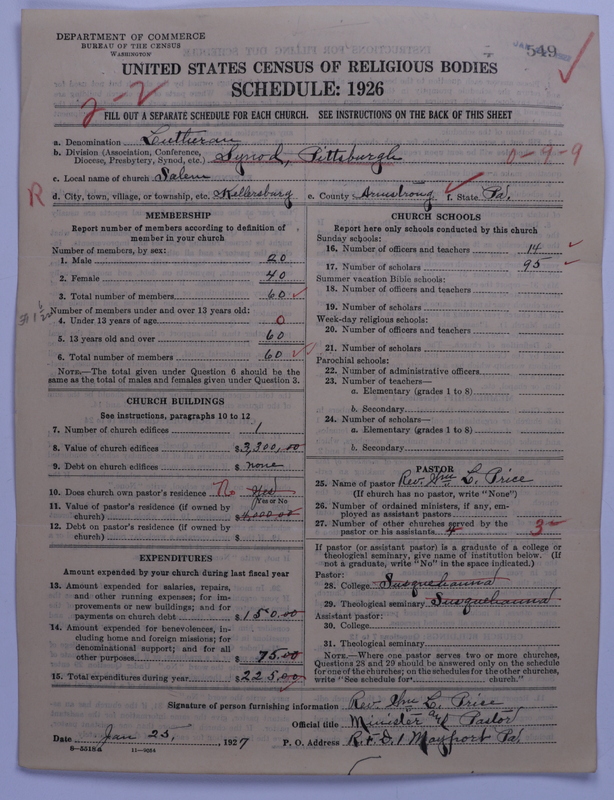 DEPARTMENT OF COMMERCE
BUREAU OF THE CENSUS
WASHINGTON
549
UNITED STATES CENSUS OF RELIGIOUS BODIES
SCHEDULE: 1926
2-2
FILL OUT A SEPARATE SCHEDULE FOR EACH CHURCH. SEE INSTRUCTIONS ON THE BACK OF THIS SHEET
a. Denomination Lutheran
b. Division (Association, Conference, Diocese, Presbytery, Synod, etc.) Synod, Pittsburgh
0-9-9
c. Local name of church Salem
R
d. City, town, village, or township, etc. Kellersburg e. County Armstrong f. State Pa.
MEMBERSHIP
Report number of members according to definition of
member in your church
Number of members, by sex:
1. Male 20
2. Female 40
3. Total number of members 60
Number of members under and over 13 years old:
4. Under 13 years of age 0
5. 13 years old and over 60
6. Total number of members 60
NOTE.—The total given under Question 6 should be
same as the total of males and females given under Question 3.
CHURCH BUILDINGS
See instructions, paragraphs 10 to 12
7. Number of church edifices 1
8. Value of church edifices $3,300,00
9. Debt on church edifices $ none
10. Does church own pastor's residence No Yes
(Yes or No
11. Value of pastor's residence (if owned by
church) $,000.00
12. Debt on pastor's residence (if owned by
church) $
EXPENDITURES
Amount expended by your church during last fiscal year
13. Amount expended for salaries, repairs,
and other running expenses; for im-
provements or new buildings; and for
payments on church debt $150.00
14. Amount expended for benevolences, in-
cluding home and foreign missions; for
denominational support; and for all
other purposes $ 75.00
15. Total expenditures during year $225.00
CHURCH SCHOOLS
Report here only schools conducted by this church
Sunday schools:
16. Number of officers and teachers 14
17. Number of scholars 95
Summer vacation Bible schools:
18. Number of officers and teachers
19. Number of scholars
Week-day religious schools:
20. Number of officers and teachers
21. Number of scholars
Parochial schools:
22. Number of administrative officers
23. Number of teachers—
a. Elementary (grades 1 to 8)
b. Secondary
24. Number of scholars—
a. Elementary (grades 1 to 8)
b. Secondary
PASTOR
25. Name of pastor Rev. Wm L. Price
(If church has no pastor, write "None")
26. Number of ordained ministers, if any, em-
ployed as assistant pastors
27. Number of other churches served by the
pastor or his assistants 4 3
If pastor (or assistant pastor) is a graduate of a college or
theological seminary, give name of institution below. (If
not a graduate, write "No" in the space indicated.)
Pastor:
28. College Susquehanna
29. Theological seminary Susquehanna
Assistant pastor:
30. College
31. Theological seminary
NOTE.—Where one pastor serves two or more churches,
Questions 28 and 29 should be answered only on the schedule
for one of the churches; on the schedules for the other churches,
write "See schedule for church."
Signature of person furnishing information Rev. Wm L. Price
Official title Minister & Pastor
Date Jan 25, 1927 P. O. Address R.F.D. 1 Mayport Pa.
8-5518a 11-9034